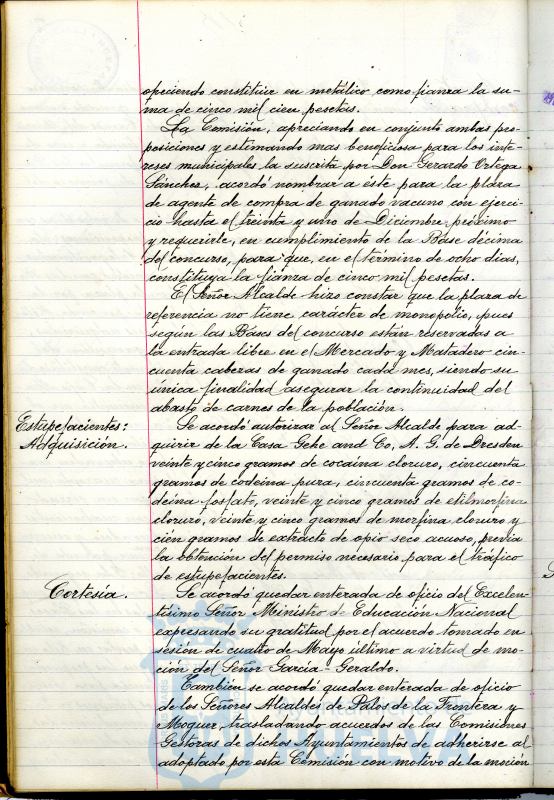 opreciendo constituir en metálico como fianza la su-
ma de cinco mil cien pesetas.
La Comisión, apreciando en conjunto ambas pro-
posiciones y estimando mas beneficiosa para los inte-
reses municipales la suscrita por Don Gerardo Ortega
Sánchez, acordó nombrar a éste para la plaza
de agente de compra de ganado vacuno con ejerci-
cio hasta el treinta y uno de Diciembre próximo
y requerirle, en cumplimiento de la Base décima
del concurso, para que, en el término de ocho dias,
constituya la fianza de cinco mil pesetas.
El Señor Alcalde hizo constar que la plaza de
referencia no tiene carácter de monopolio, pues
según las Bases del concurso están reservadas a
la entrada libre en el Mercado y Matadero cin-
cuenta cabezas de ganado cada mes, siendo su
única finalidad asegurar la continuidad del
abasto de carnes de la población.
Estupefacientes:
Adquisición.
Se acordó autorizar al Señor Alcalde para ad-
quirir de la Casa Gehe and Co, A. G. de Dresden
veinte y cinco gramos de cocaina cloruro, cincuenta
gramos de codeina pura, cincuenta gramos de co-
deina fosfato, veinte y cinco gramos de etilmorfina
cloruro, veinte y cinco gramos de morfina cloruro y
cien gramos de extracto de opio seco acuoso, previa
la obtención del permiso necesario para el tráfico
de estupefacientes.
Cortesía.
Se acordó quedar enterada de oficio del Excelen-
tísimo Señor Ministro de Educación Nacional
expresando su gratitud por el acuerdo tomado en
sesión de cuatro de Mayo último a virtud de mo-
ción del Señor García-Geraldo.
También se acordó quedar enterada de oficio
de los Señores Alcaldes de Palos de la Frontera y
Moguer, trasladando acuerdos de las Comisiones
Gestoras de dichos Ayuntamientos de adherirse al
adoptado por esta Comisión con motivo de la moción